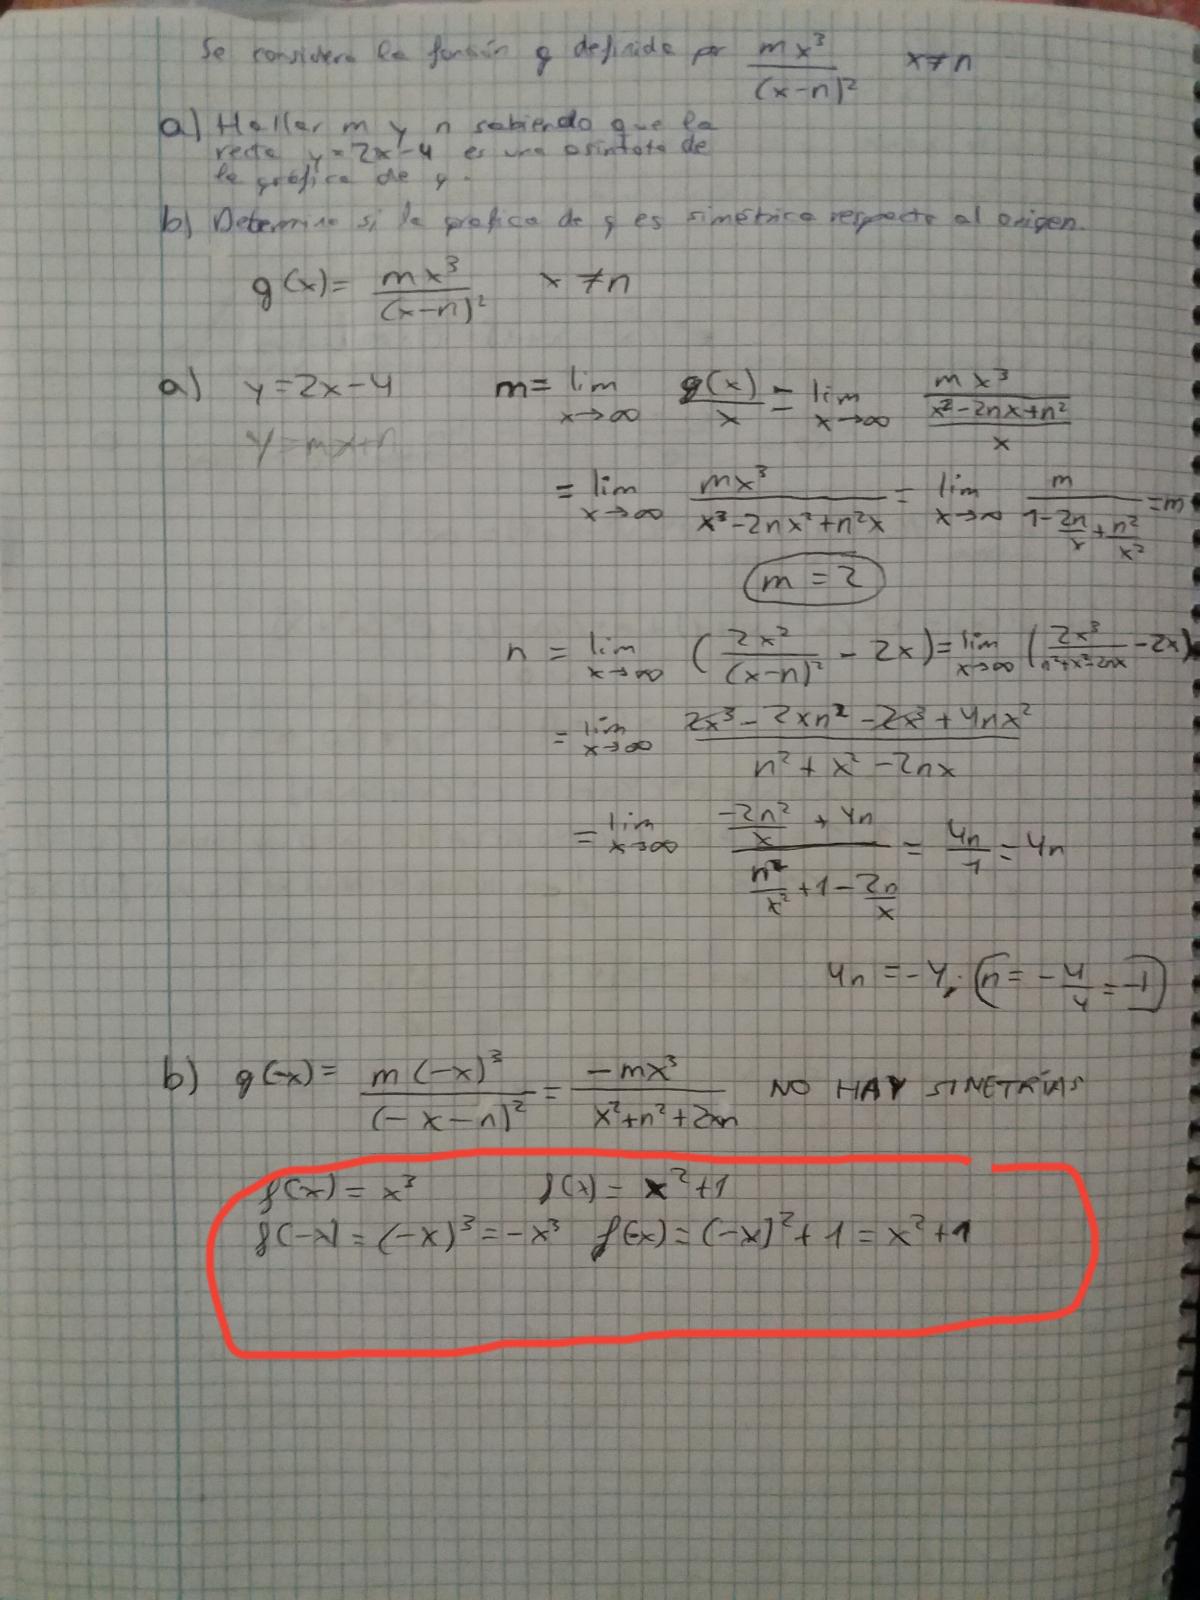 Se considera la función g definida por mx³/(x-n)² x≠n
a) Hallar m y n sabiendo que la
recta y=2x-4 es una asíntota de
la gráfica de g.
b) Determine si la grafica de g es simétrica respecto al origen.
g(x)= mx³/(x-n)² x≠n
a) y=2x-4 m= lim x→∞ g(x)/x = lim x→∞ (mx³/(x²-2nx+n²))/x
y=mx+n
= lim x→∞ mx³/(x³-2nx²+n²x) = lim x→∞ m/(1-2n/x+n²/x²) =m
m=2
n = lim x→∞ (2x²/(x-n)² - 2x)= lim x→∞ (2x³/(n²+x²-2nx) -2x)
= lim x→∞ (2x³-2xn²-2x³+4nx²)/(n²+x²-2nx)
= lim x→∞ (-2n²/x + 4n)/(n²/x²+1-2n/x) = 4n/1 = 4n
4n = -4; n = -4/4 = -1
b) g(-x)= m(-x)³/(-x-n)² = -mx³/(x²+n²+2xn) NO HAY SIMETRÍAS
f(x) = x³ f(x) = x²+1
f(-x) = (-x)³ = -x³ f(-x) = (-x)²+1 = x²+1